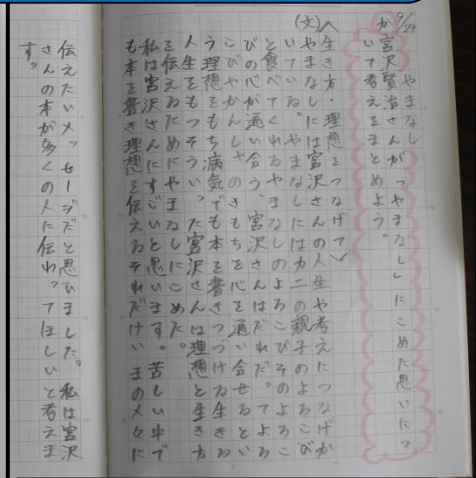 9/29
やまなし
宮沢賢治さんが「やまなし」にこめた思いにつ
いて考えをまとめよう。
(文)
〈生き方・理想とつなげて〉
やまなしには宮沢さんの人生や考えにつなげが
いている。やまなしにはカニの親子のよろこび
と食べてくれるやまなしのよろこびそのよろこ
びの心が通い合う、宮沢さんはだれだってよろ
こびやかんしゃのきもちを心を通い合せるとい
う理想をもち病気でも本を書きつづける生きる
人生をもつそういった宮沢さんは理想と生き方
を伝えるためにやまなしにこめた。
私は宮沢さんにすごいと思います。苦しい中で
も本を書き理想を伝えるそれだけいまの人々に
伝えたいメッセージだと思いました。私は宮沢
さんの本が多くの人に伝わってほしいと考えま
す。